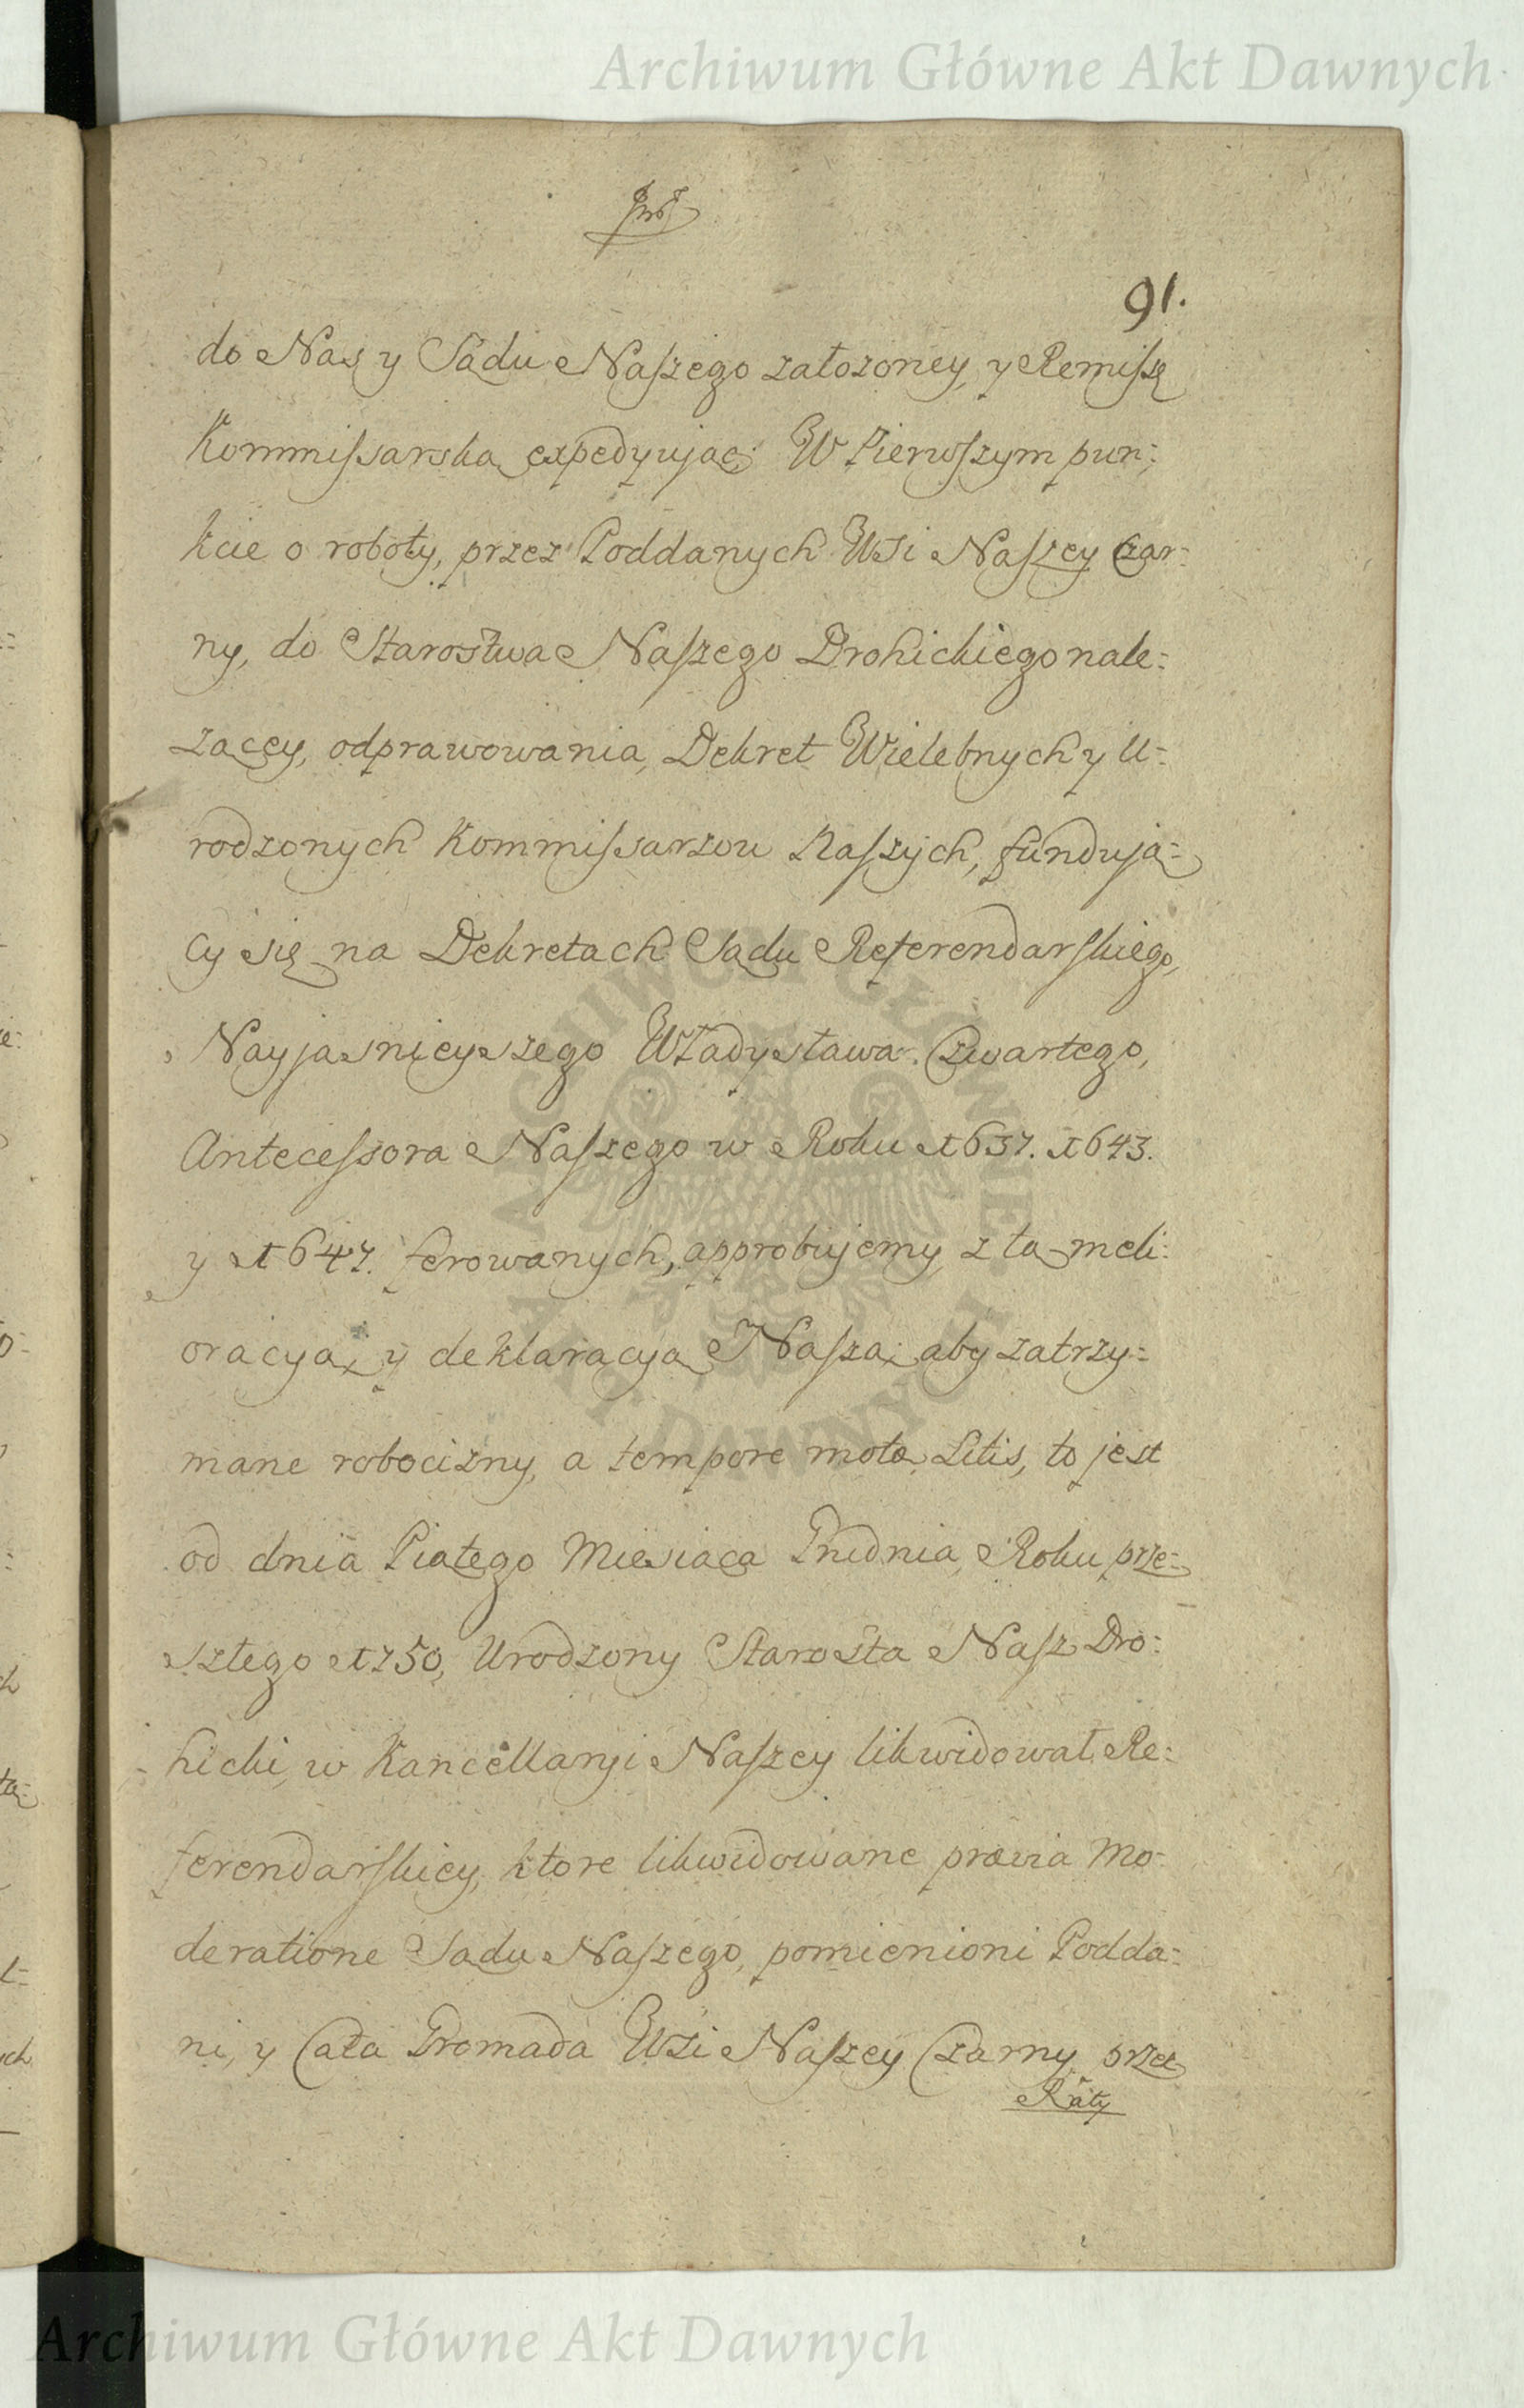 Archiwum Główne Akt Dawnych
91.
do Nas y Sądu Naszego załozoney, y Remissę
Kommissarską expedyując: W Pierwszym pun:
kcie o roboty, przez Poddanych Wsi Naszey Czar:
ny, do Starostwa Naszego Drohickiego nale:
zącey, odprawowania, Dekret Wielebnych y U:
rodzonych Kommissarzow Naszych, fundują:
cy się na Dekretach Sądu Referendarskiego,
Nayjasnieyszego Władysława Czwartego,
Antecessora Naszego w Roku 1637. 1643.
y 1647. ferowanych, approbujemy z tą meli:
oracyą, y deklaracyą Naszą, aby zatrzy:
mane robocizny, a tempore motæ Litis, to jest
od dnia Piątego Miesiąca Grudnia, Roku prze:
szłego 1750, Urodzony Starosta Nasz Dro:
hicki, w Kancellaryi Naszey likwidował Re:
ferendarskiey, ktore likwidowane prævia Mo:
deratione Sądu Naszego, pomienioni Podda:
ni, y Cała Gromada Wsi Naszey Czarny przez
Raty
ARCHIWUM GŁÓWNE AKT DAWNYCH
Archiwum Główne Akt Dawnych